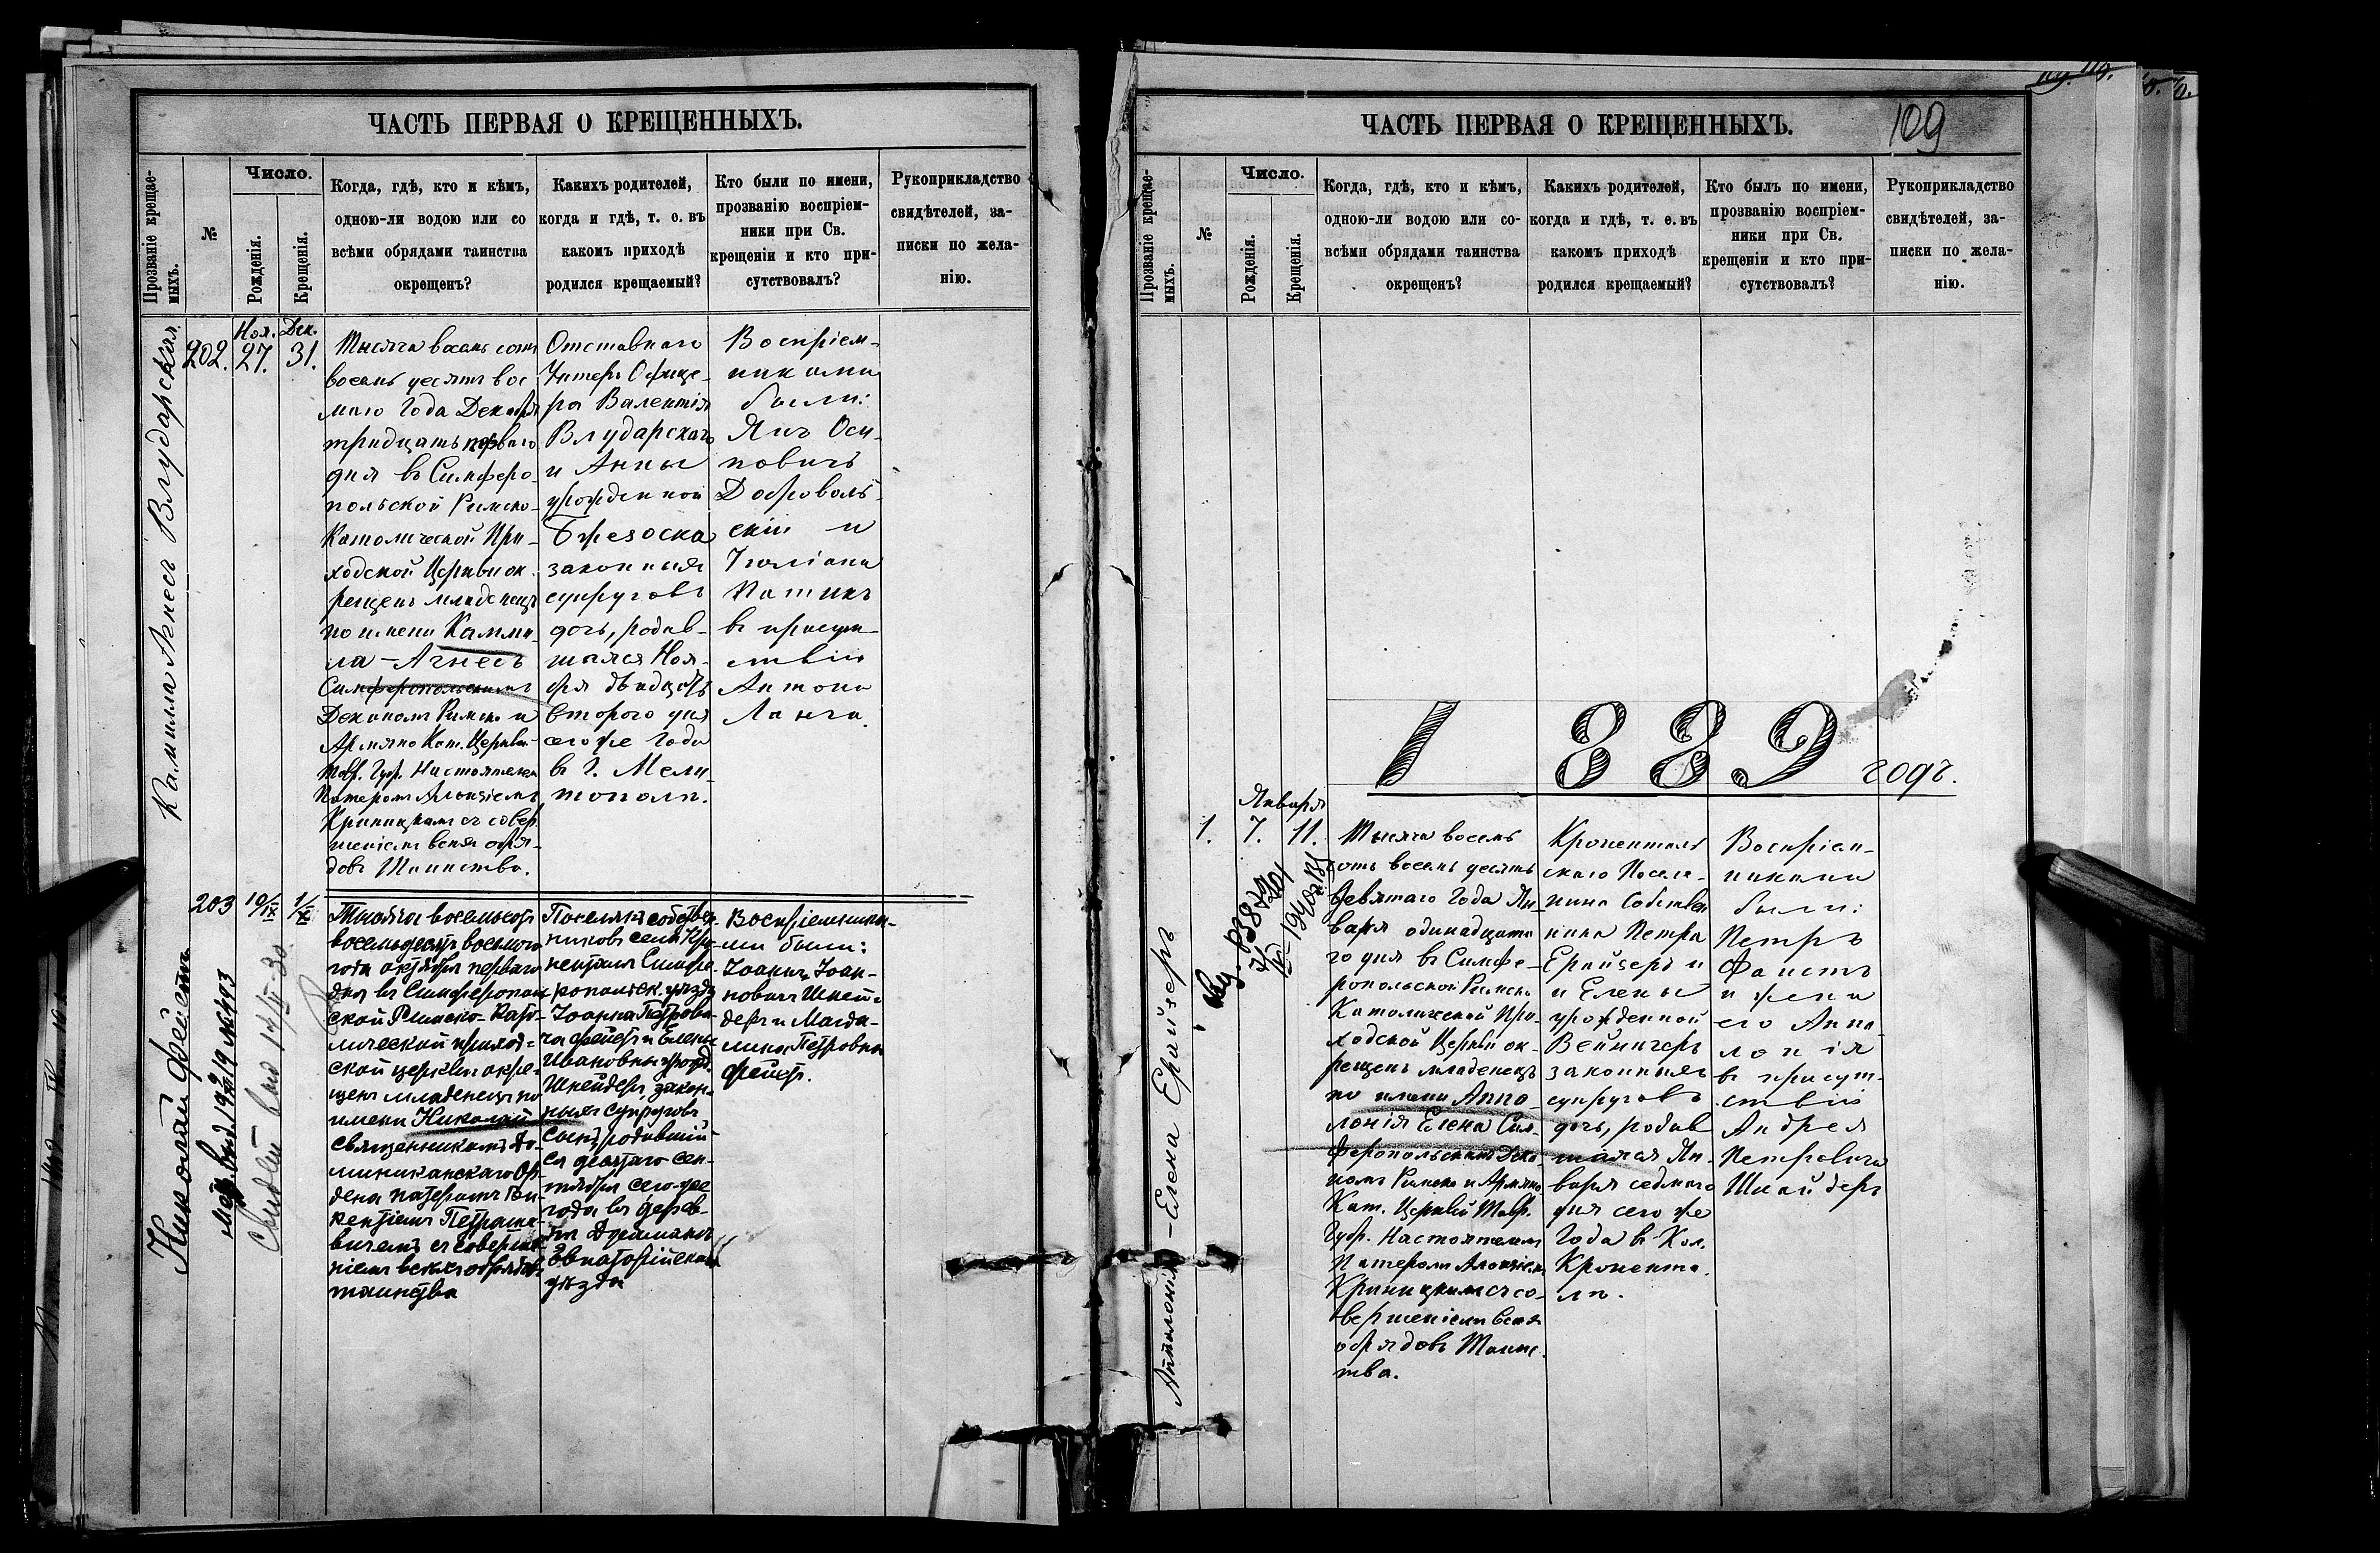 ЧАСТЬ ПЕРВАЯ О КРЕЩЕННЫХЪ.
Прозваніе крещае-
мыхъ.
№
Число.
Рожденія.
Крещенія.
Когда, гдѣ, кто и кѣмъ,
одною-ли водою или со
всѣми обрядами таинства
окрещенъ?
Какихъ родителей,
когда и гдѣ, т. е. въ
какомъ приходѣ
родился крещаемый?
Кто были по имени,
прозванію воспріем-
ники при Св.
крещеніи и кто при-
сутствовалъ?
Рукоприкладство
свидѣтелей, за-
писки по жела-
нію.
Камилла Агнесъ Влударская.
202.
Ноя.
27.
Дек.
31.
Тысяча восемь сотъ
восемь десятъ вос
маго Года Декабря
тридцать перваго
дня въ Симферо-
польской Римско-
Католической При-
ходской Церкви ок-
рещенъ младенецъ
по имени Камми-
ла - Агнесъ
Симферопольскимъ
Деканомъ Римско и
Армяно Кат. Церквей
Тавр. Губ. Настоятелемъ
Патеромъ Алоизіемъ
Криницкимъ съ совер
шеніемъ всехъ обря-
довъ Таинства.
Отставнаго
Унтеръ Офице-
ра Валентія
Влударскаго
и Анны
урожденной
Брезоска
законныхъ
супруговъ
дочь, родив-
шаяся Ноя-
бря двадцать
второго дня
сего же Года
въ Г. Мели-
тополѣ.
Воспріем-
никами
были:
Янъ Оси-
повичъ
Доброволь-
скій и
Юліана
Патикъ
въ присут-
ствіи
Антона
Ланга.
Николай Фейстъ
203
10/IX
1/X
Тысяча восемьсотъ
восемьдесятъ восьмого
года октября перваго
дня въ Симферополь
ской Римско-Като-
лической приход-
ской церкви окре-
щенъ младенецъ по
имени Николай
священникомъ До-
миниканскаго Ор-
дена патеромъ Вин-
кентіемъ Петрашке-
вичемъ съ соверше-
ніемъ всехъ обрядовъ
таинства
Поселянъ собствен
никовъ села Кро-
ненталя Симфе-
ропольск. уѣзда
Іоанна Петрови-
ча Фейстъ и Елены
Ивановны урожд.
Шнейдеръ, закон-
ныхъ супруговъ
сынъ, родившій-
ся десятаго сен-
тября сего-же
года въ дерев-
нѣ
Эвпаторійскаго
уѣзда
Воспріемника-
ми были:
Іоаннъ Іоан-
новичъ Шней-
деръ и Магда-
лина Петровна
Фейстъ.
ЧАСТЬ ПЕРВАЯ О КРЕЩЕННЫХЪ.
109
Прозваніе крещае-
мыхъ.
№
Число.
Рожденія.
Крещенія.
Когда, гдѣ, кто и кѣмъ,
одною-ли водою или со-
всѣми обрядами таинства
окрещенъ?
Какихъ родителей,
когда и гдѣ, т. е. въ
какомъ приходѣ
родился крещаемый?
Кто былъ по имени,
прозванію воспріем-
ники при Св.
крещеніи и кто при-
сутствовалъ?
Рукоприкладство
свидѣтелей, за-
писки по жела-
нію.
1889 годъ.
Января
1.
7.
11.
Апполонія - Елена Ерайзеръ
Тысяча восемь
сотъ восемь десятъ
девятаго Года Ян-
варя одинадцата
го дня въ Симфе-
ропольской Римско
Католической При-
ходской Церкви ок-
рещенъ младенецъ
по имени Аппо-
лонія Елена Сим-
феропольскимъ Дека-
номъ Римско и Армяно
Кат. Церквей Тавр.
Губ. Настоятелемъ
Патеромъ Алоизіемъ
Криницкимъ съ со-
вершеніемъ всехъ
обрядовъ Таинс
тва.
Кронентальс
скаго Поселя-
нина Собствен
ника Петра
Ерайзеръ и
и Елены
урожденной
Вейнигеръ
законныхъ
супруговъ
дочь, родив
шаяся Ян-
варя седмаго
дня сего же
Года въ Кол.
Кронента-
лѣ.
Воспріем-
никами
были:
Петръ
Фаистъ
и жена
его Аппо-
лонія
въ присут-
ствіи
Андрея
Петровича
Шнайдеръ